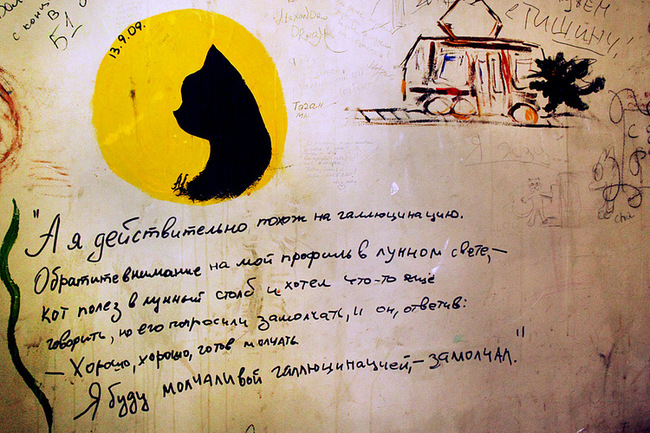 В
Б1
13.9.09.
"ТИШИНУ"
"А я действительно похож на галлюцинацию.
Обратите внимание на мой профиль в лунном свете,–
кот полез в лунный столб и хотел что-то ещё
говорить, но его попросили замолчать, и он, ответив:
– Хорошо, хорошо, готов молчать
Я буду молчаливой галлюцинацией,– замолчал."